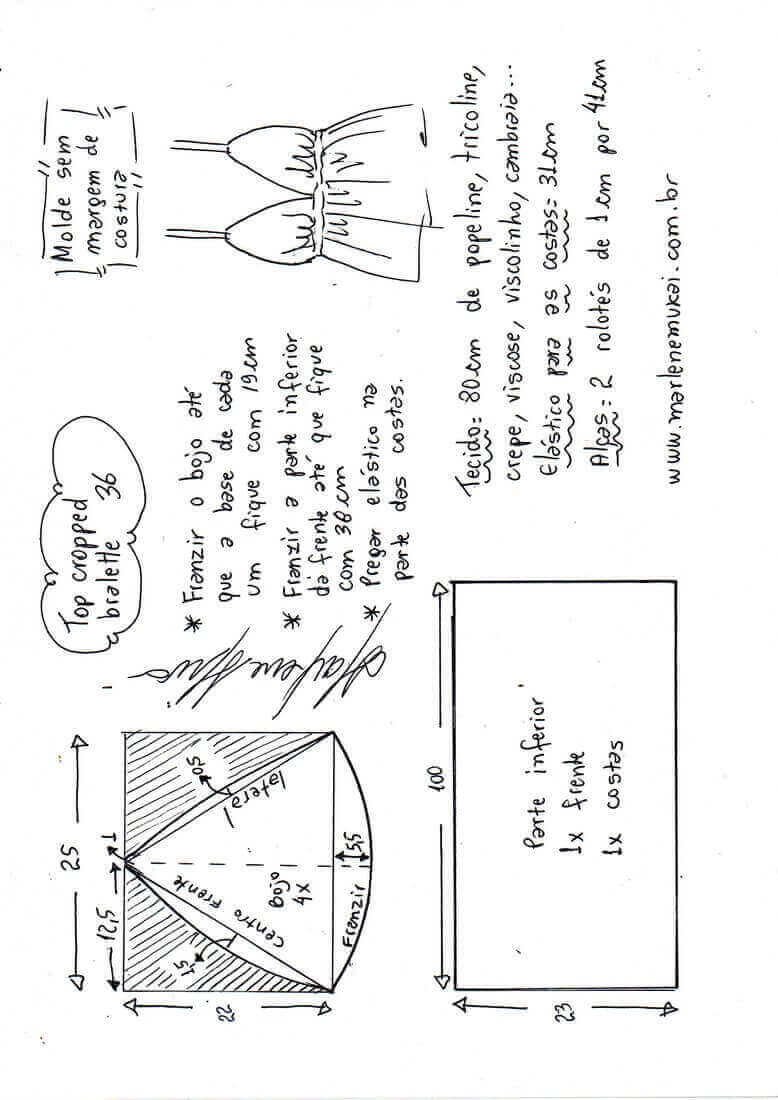 Top cropped
bralette 36
Molde sem
margem de
costura
25
12,5
1
22
1,5
0,5
Centro Frente
lateral
Bojo
4x
5,5
Franzir
* Franzir o bojo até
que a base de cada
um fique com 19cm
* Franzir a parte inferior
da frente até que fique
com 38cm
* Pregar elástico na
parte das costas.
100
23
Parte inferior
1x frente
1x costas
Tecido= 80cm de popeline, tricoline,
crepe, viscose, viscolinho, cambraia...
Elástico para as costas= 31cm
Alças= 2 rolotés de 1cm por 41cm
www.marlenemukai.com.br